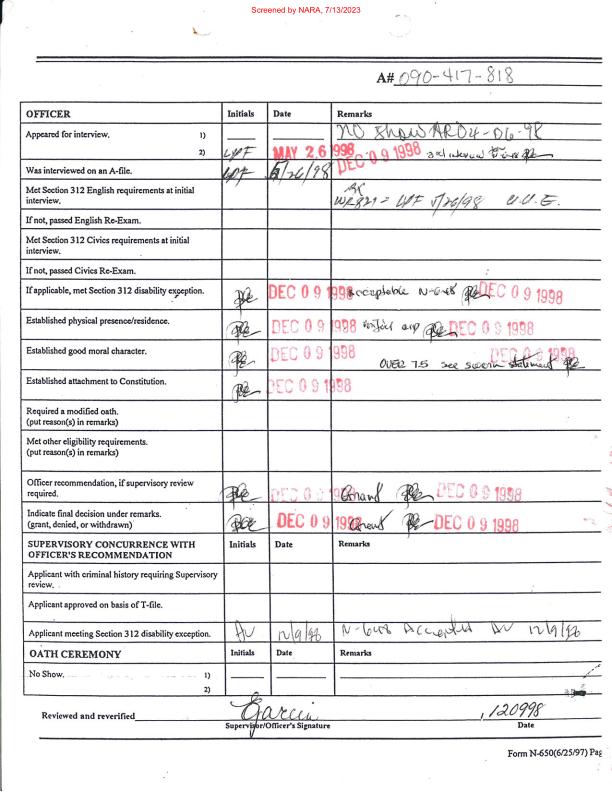 Screened by NARA, 7/13/2023
A# 090-417-818
OFFICER Initials Date Remarks
Appeared for interview. 1) NO Show ARO 4-06-98
2) LPF MAY 26 1998 DEC 09 1998 3rd interview
Was interviewed on an A-file. LPF 5/26/98
Met Section 312 English requirements at initial interview. LPF 5/26/98
If not, passed English Re-Exam.
Met Section 312 Civics requirements at initial interview.
If not, passed Civics Re-Exam.
If applicable, met Section 312 disability exception. DEC 09 1998 acceptable N-648 DEC 09 1998
Established physical presence/residence. DEC 09 1998 DEC 09 1998
Established good moral character. DEC 09 1998 DEC 09 1998
OVER 75 see sworn statement
Established attachment to Constitution. DEC 09 1998
Required a modified oath.
(put reason(s) in remarks)
Met other eligibility requirements.
(put reason(s) in remarks)
Officer recommendation, if supervisory review required. DEC 09 1998 Grant DEC 09 1998
Indicate final decision under remarks.
(grant, denied, or withdrawn) DEC 09 1998 Grant DEC 09 1998
SUPERVISORY CONCURRENCE WITH OFFICER'S RECOMMENDATION Initials Date Remarks
Applicant with criminal history requiring Supervisory review.
Applicant approved on basis of T-file.
Applicant meeting Section 312 disability exception. AV 12/9/98 N-648 Accepted AV 12/9/98
OATH CEREMONY Initials Date Remarks
No Show. 1)
2)
Reviewed and reverified Garcia 120998
Supervisor/Officer's Signature Date
Form N-650(6/25/97) Pag